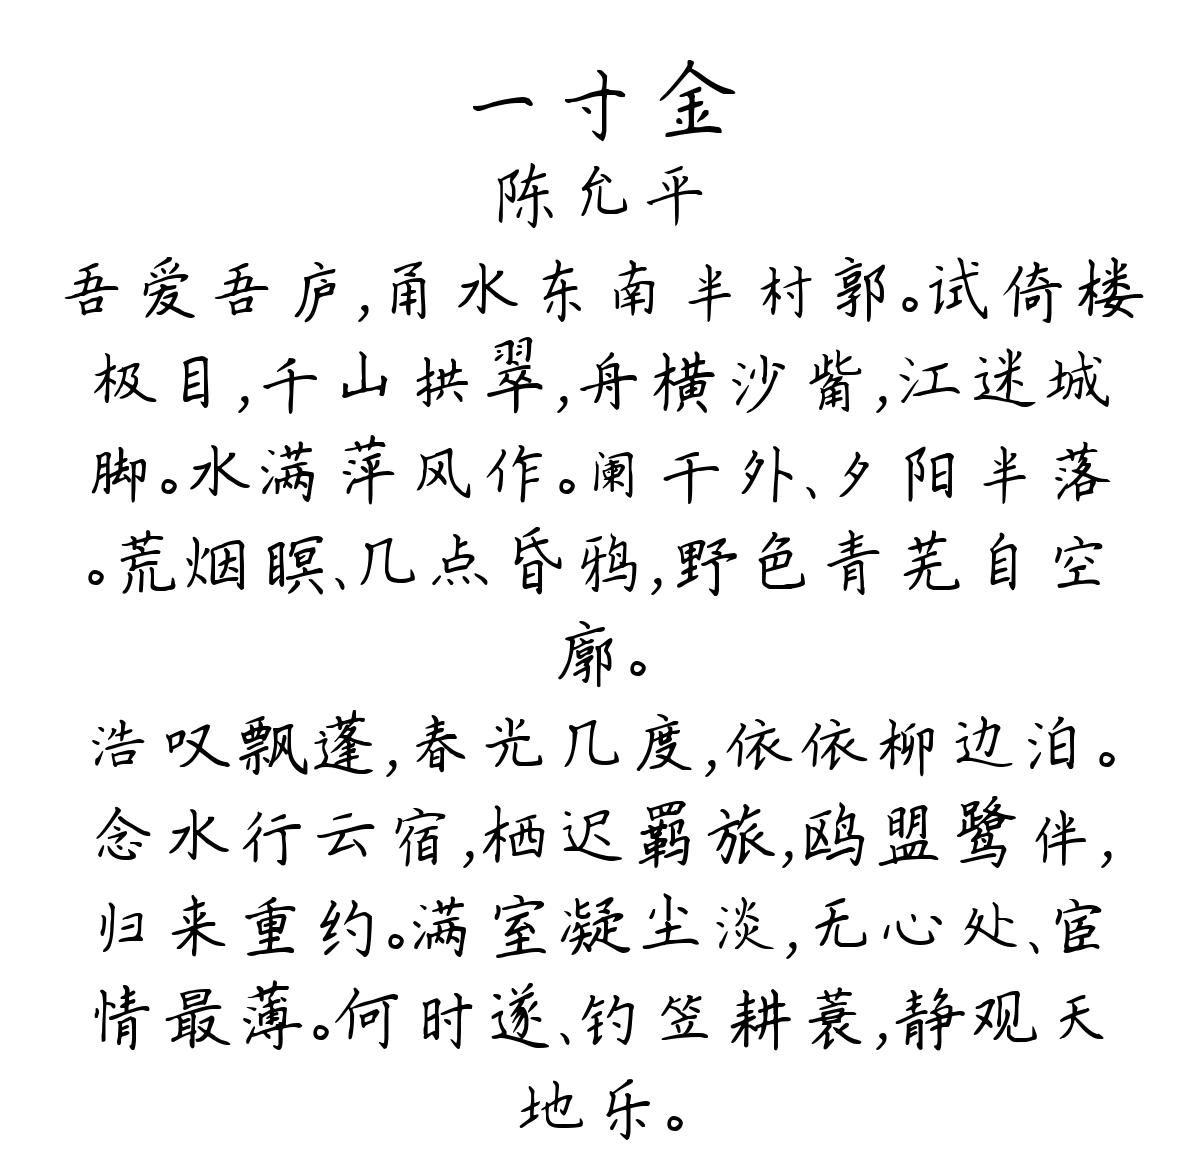 一寸金
陈允平
吾爱吾庐,甬水东南半村郭。试倚楼
极目,千山拱翠,舟横沙觜,江迷城
脚。水满萍风作。阑干外、夕阳半落
。荒烟暝、几点昏鸦,野色青芜自空
廓。
浩叹飘蓬,春光几度,依依柳边泊。
念水行云宿,栖迟羁旅,鸥盟鹭伴,
归来重约。满室凝尘淡,无心处、宦
情最薄。何时遂、钓笠耕蓑,静观天
地乐。